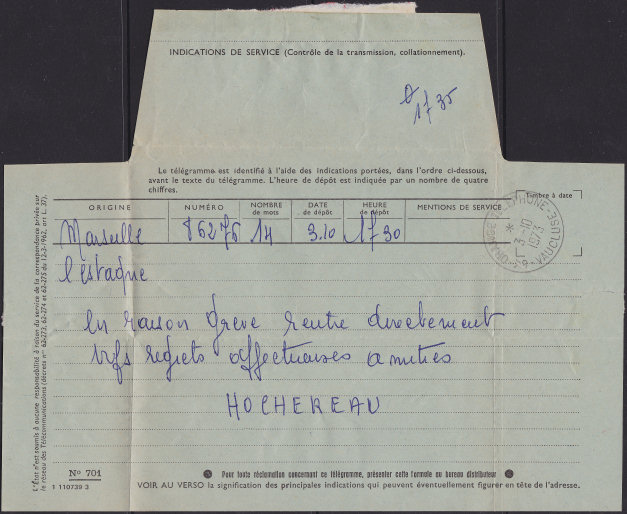 INDICATIONS DE SERVICE (Contrôle de la transmission, collationnement).
1735
Le télégramme est identifié à l'aide des indications portées, dans l'ordre ci-dessous,
avant le texte du télégramme. L'heure de dépôt est indiquée par un nombre de quatre
chiffres.
Timbre à date
ORIGINE NUMÉRO NOMBRE de mots DATE de dépôt HEURE de dépôt MENTIONS DE SERVICE
Marseille 86276 14 3.10 1730
l'estaque
3-10
1973
VAUCLUSE
En raison Greve rentre directement
vifs regrets affectueuses amities
HOCHEREAU
L'État n'est soumis à aucune responsabilité à raison du service de la correspondance privée sur
le réseau des Télécommunications (décrets n° 62-273, 62-274 et 62-275 du 12-3-1962, art L. 37).
N° 701
1 110739 3
Pour toute réclamation concernant ce télégramme, présenter cette formule au bureau distributeur
VOIR AU VERSO la signification des principales indications qui peuvent éventuellement figurer en tête de l'adresse.